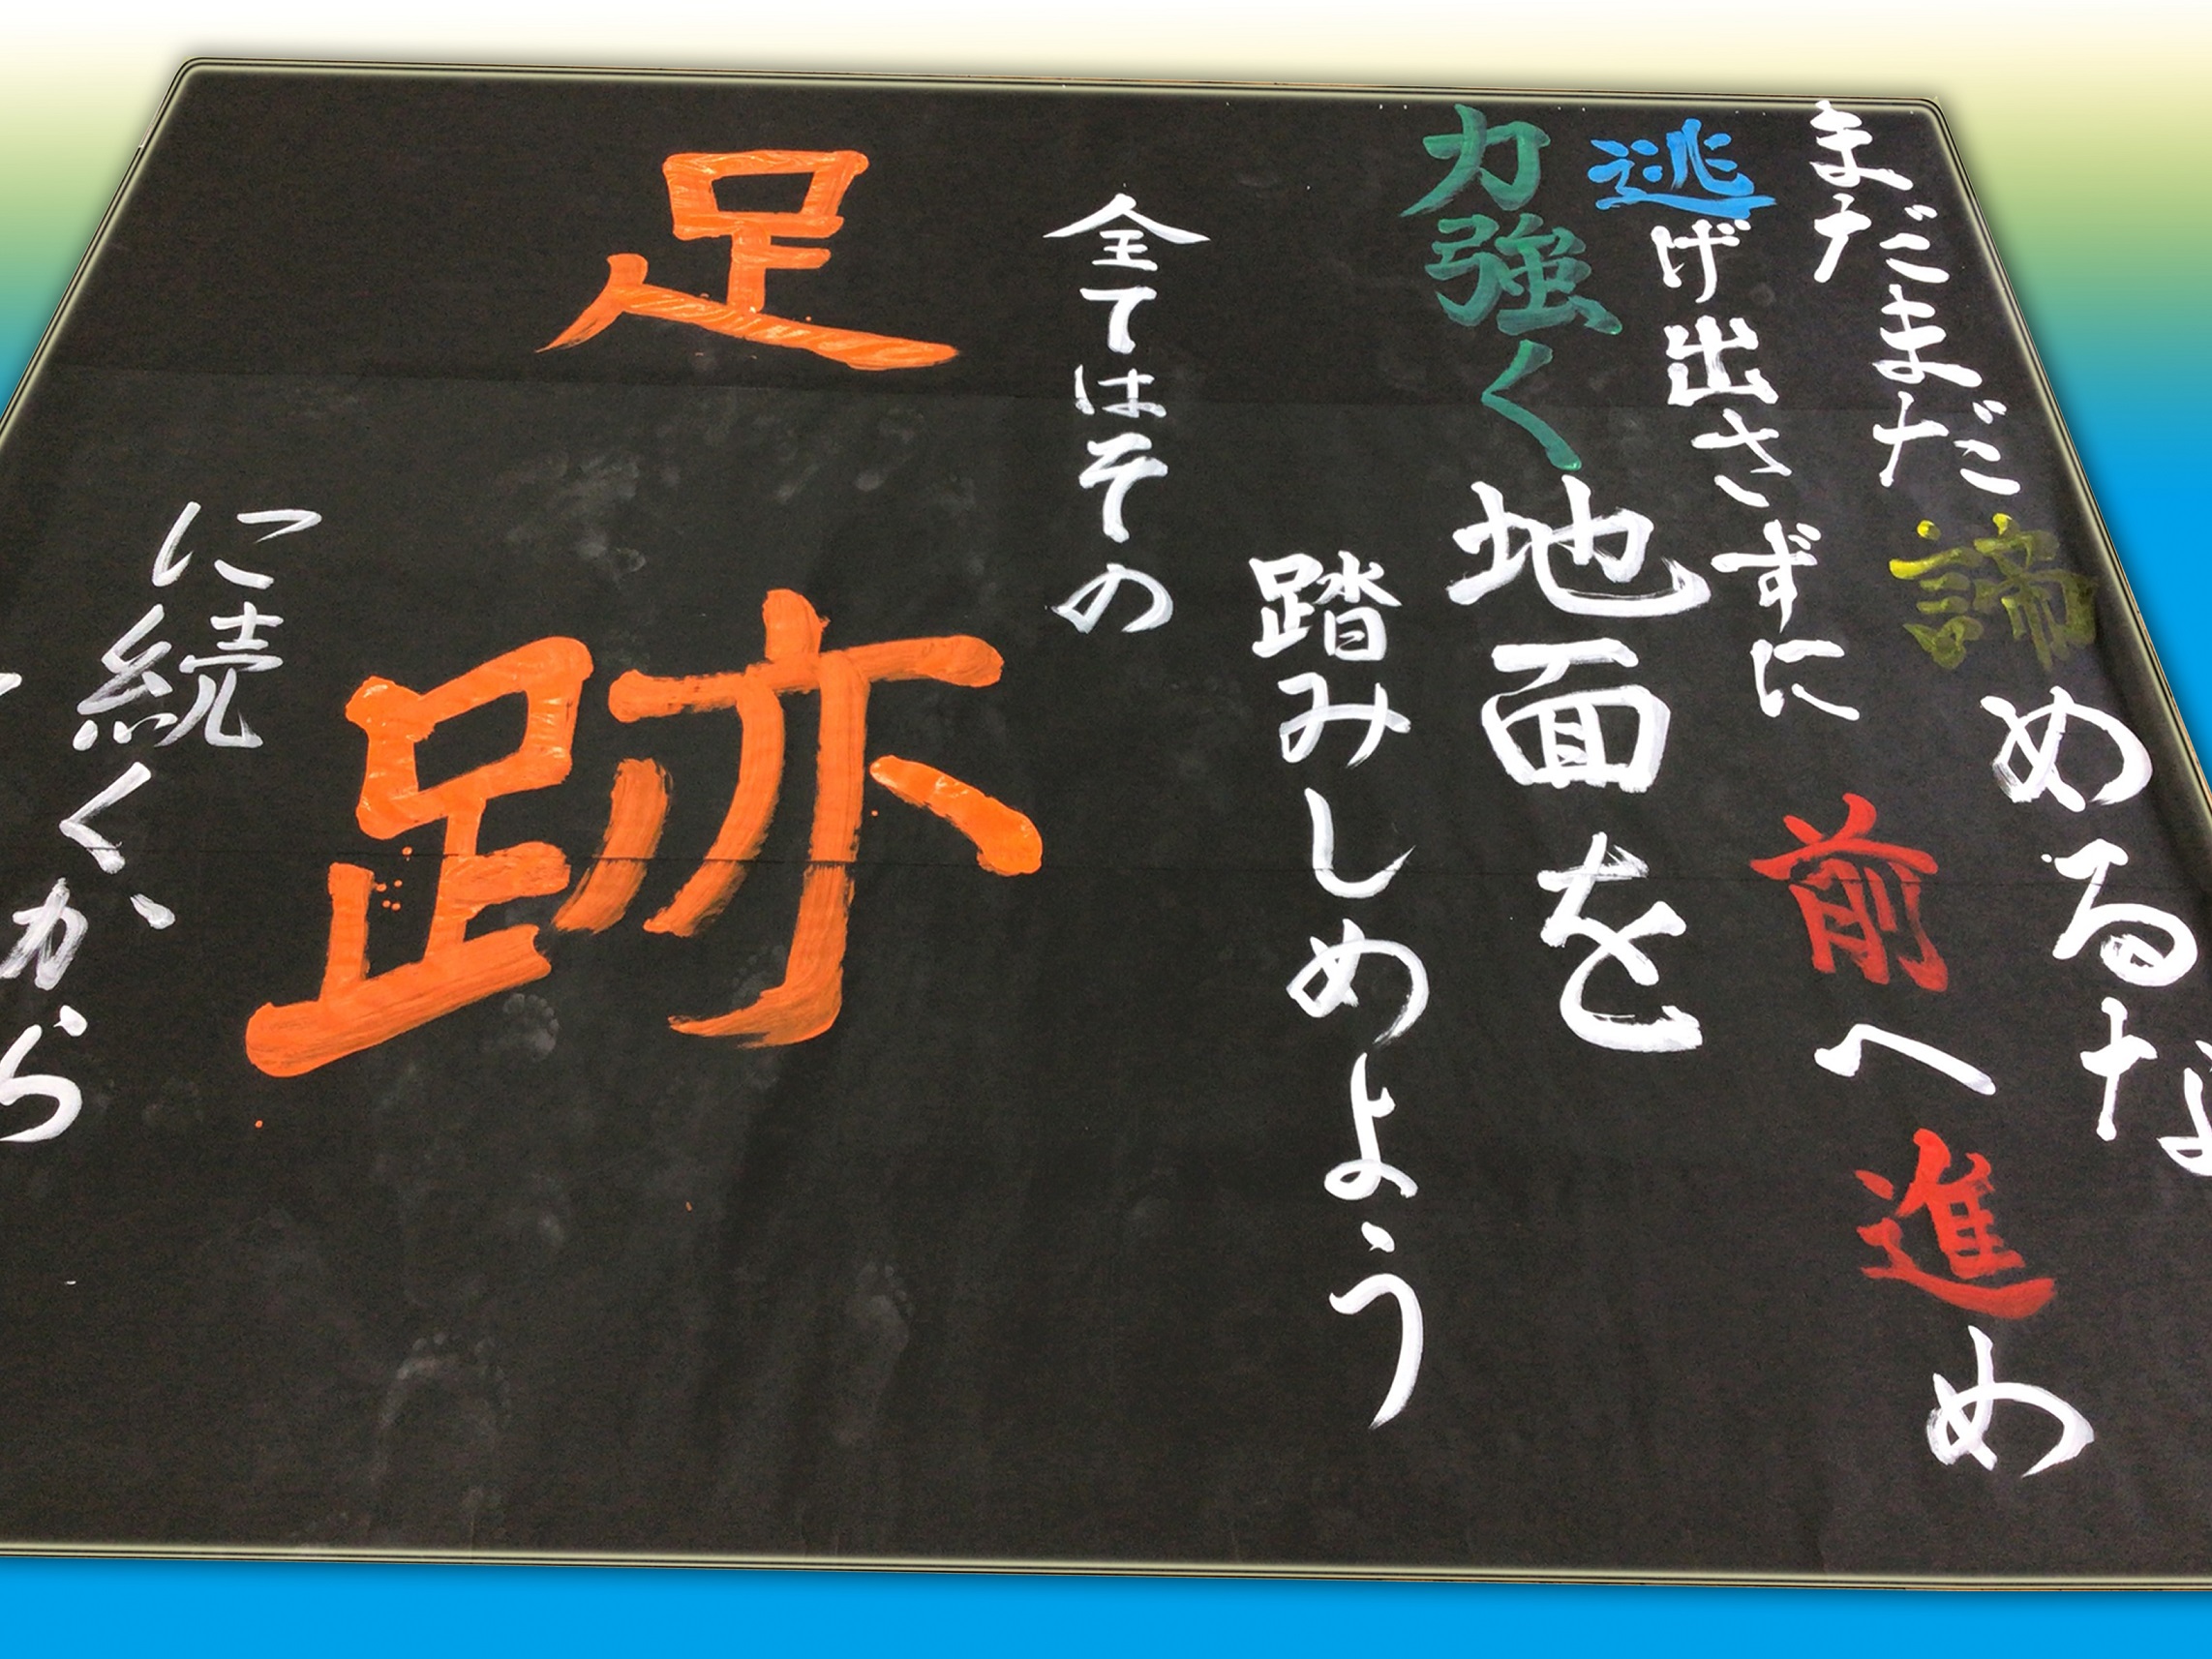 まだまだ諦めるな
逃げ出さずに前へ進め
力強く地面を
踏みしめよう
全てはその
足跡
に続くから